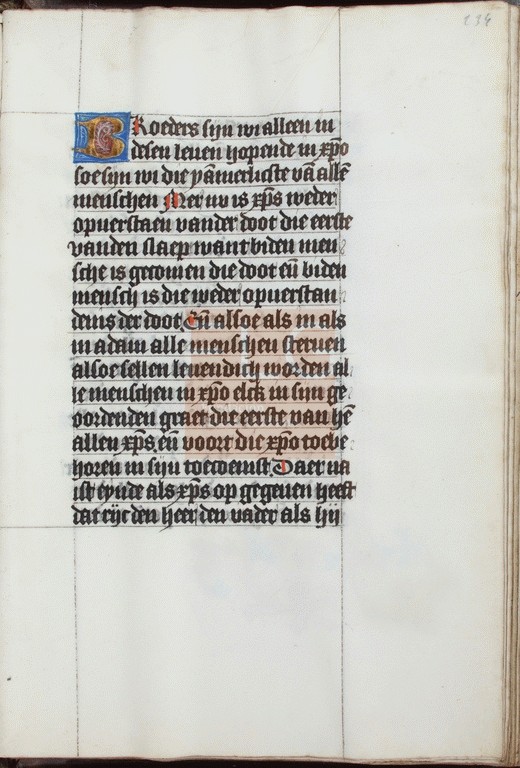 234
BRoeders sijn wi alleen in
desen leuen hopende in xpo
soe sijn wi die yamerlicste va alle
menschen Mer nu is xps weder
opuerstaen vander doot die eerste
vanden slaep want biden men
sche is gecomen die doot en biden
mensch is die weder opuerstan
denis der doot En alsoe als in als
in adam alle menschen steruen
alsoe sellen leuendich worden al
le menschen in xpo elck in sijn ge
oordenden graet die eerste van he
allen xps en voort die xpo toebe
horen in sijn toecoemst Daer na
ist eynde als xps op gegeuen heeft
dat rijc den heer den vader als hij